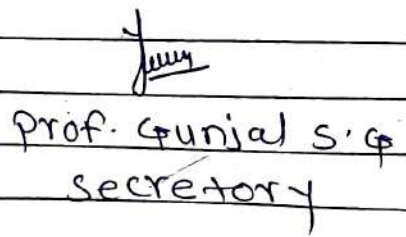 Prof. Gunjal S.G
secretory